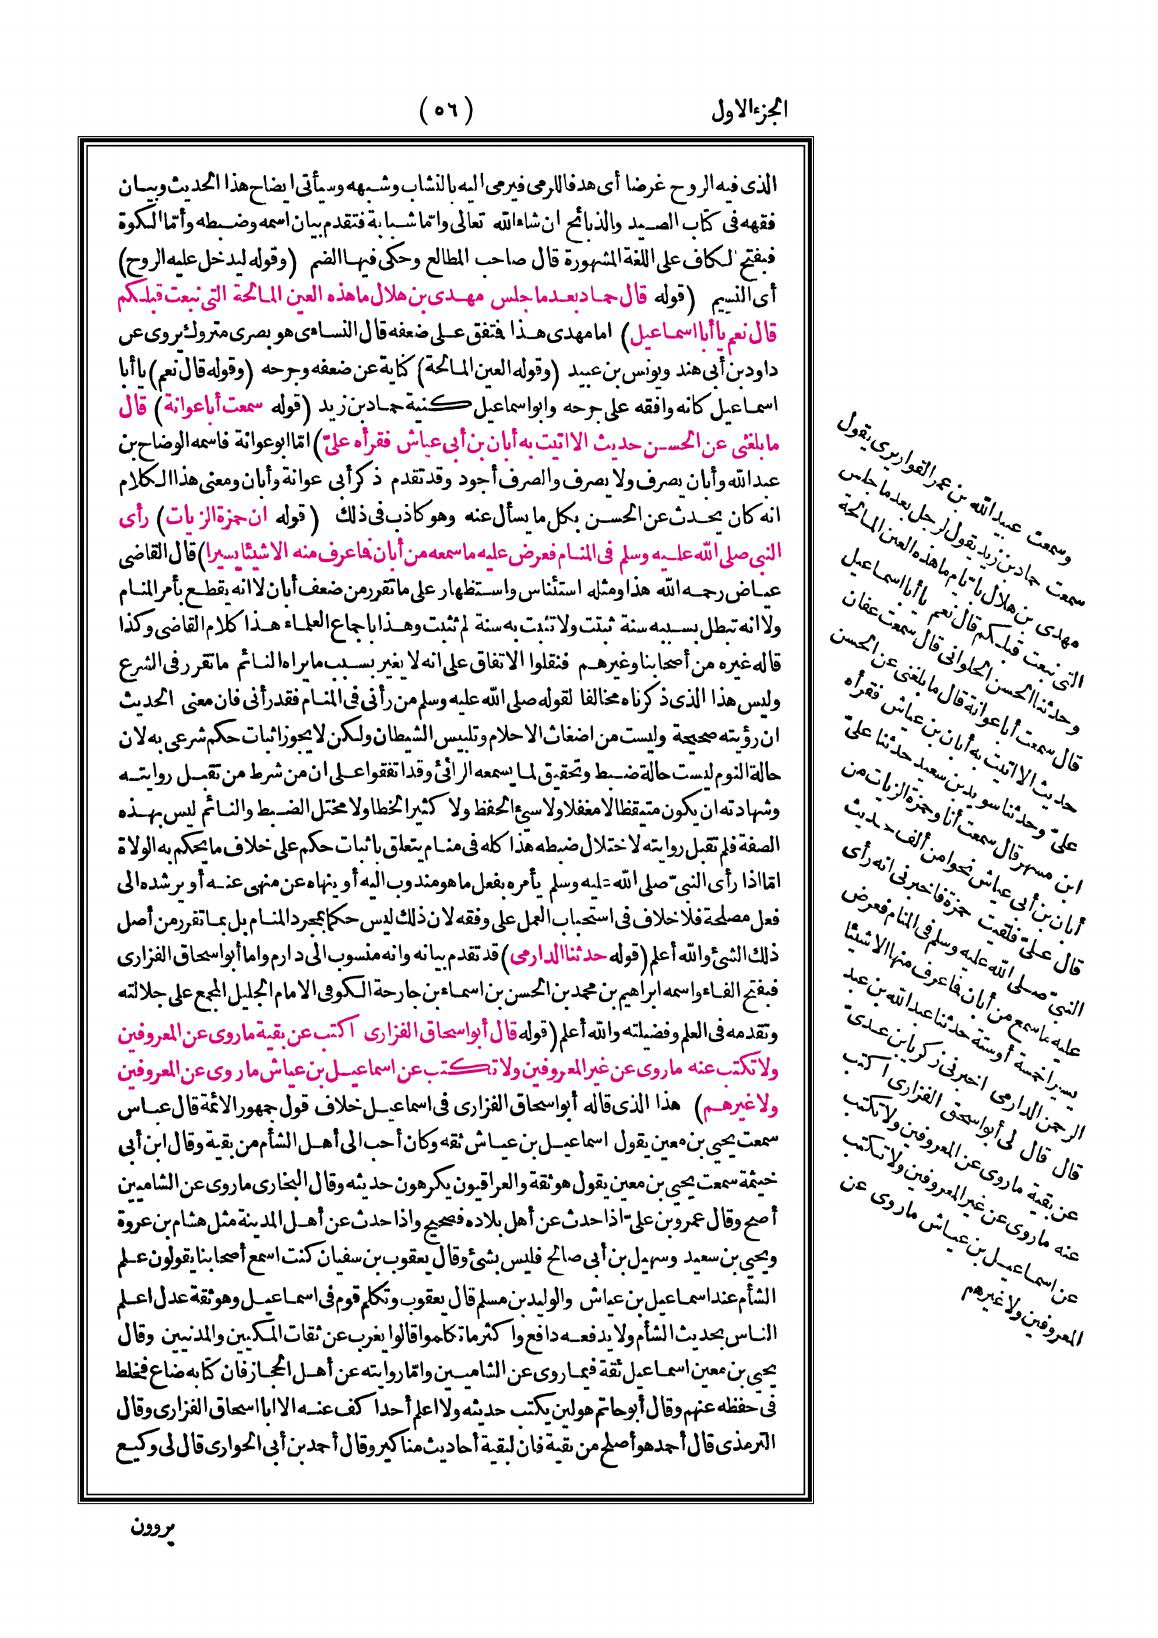 الجزء الاول
(٥٦)
الذى فيه الروح غرضا أى هدفا للرمى فيرمى اليه بالنشاب وشبهه وسيأتى ايضاح هذا الحديث وبيان
فقهه فى كتاب الصيد والذبائح ان شاء الله تعالى واما شبابة فتقدم بيان اسمه وضبطه وأما الكوة
فبفتح الكاف على اللغة المشهورة قال صاحب المطالع وحكى فيها الضم (وقوله ليدخل عليه الروح)
أى النسيم (قوله قال حماد بعد ما جلس مهدى بن هلال ما هذه العين المالحة التى نبعت قبلكم
قال نعم يا أبا اسماعيل) اما مهدى هذا فتفق على ضعفه قال النساءى هو بصرى متروك يروى عن
داود بن أبى هند ويونس بن عبيد (وقوله العين المالحة) كناية عن ضعفه وجرحه (وقوله قال نعم) يا أبا
اسماعيل كانه وافقه على جرحه وابو اسماعيل كنية حماد بن زيد (قوله سمعت أبا عوانة) قال
ما بلغنى عن الحسن حديث الا اتيت به أبان بن أبى عياش فقرأه علىّ) امّا ابو عوانة فاسمه الوضاح بن
عبد الله وأبان يصرف ولا يصرف والصرف أجود وقد تقدم ذكر أبى عوانة وأبان ومعنى هذا الكلام
انه كان يحدث عن الحسن بكل ما يسأل عنه وهو كاذب فى ذلك (قوله ان حمزة الزيات) رأى
النبى صلى الله عليه وسلم فى المنام فعرض عليه ما سمعه من أبان فاعرف منه الا شيئا يسيرا) قال القاضى
عياض رحمه الله هذا ومثله استئناس واستظهار على ما تقرر من ضعف أبان لا انه يقطع بأمر المنام
ولا انه تبطل بسببه سنة ثبتت ولا تثبت به سنة لم تثبت وهذا باجماع العلماء هذا كلام القاضى وكذا
قاله غيره من أصحابنا وغيرهم فنقلوا الاتفاق على انه لا يغير بسبب ما يراه النائم ما تقرر فى الشرع
وليس هذا الذى ذكرناه مخالفا لقوله صلى الله عليه وسلم من رآنى فى المنام فقد رآنى فان معنى الحديث
ان رؤيته صحيحة وليست من اضغاث الاحلام وتلبيس الشيطان ولكن لا يجوز اثبات حكم شرعى به لان
حالة النوم ليست حالة ضبط وتحقيق لما يسمعه الرائى وقد اتفقوا على ان من شرط من تقبل روايته
وشهادته ان يكون متيقظا لا مغفلا ولا سيئ الحفظ ولا كثير الخطا ولا مختل الضبط والنائم ليس بهذه
الصفة فلم تقبل روايته لاختلال ضبطه هذا كله فى منام يتعلق باثبات حكم على خلاف ما يحكم به الولاة
امّا اذا رأى النبىّ صلى الله عليه وسلم يأمره بفعل ما هو مندوب اليه أو ينهاه عن منهى عنه أو يرشده الى
فعل مصلحة فلا خلاف فى استحباب العمل على وفقه لان ذلك ليس حكما بمجرد المنام بل بما تقرر من أصل
ذلك الشئ والله أعلم (قوله حدثنا الدارمى) قد تقدم بيانه وانه منسوب الى دارم واما أبو اسحاق الفزارى
فبفتح الفاء واسمه ابراهيم بن محمد بن الحسن بن اسماء بن جارحة الكوفى الامام الجليل المجمع على جلالته
وتقدمه فى العلم وفضيلته والله أعلم (قوله قال أبو اسحاق الفزارى اكتب عن بقية ما روى عن المعروفين
ولا تكتب عنه ما روى عن غير المعروفين ولا تكتب عن اسماعيل بن عياش ما روى عن المعروفين
ولا غيرهم) هذا الذى قاله أبو اسحاق الفزارى فى اسماعيل خلاف قول جمهور الائمة قال عباس
سمعت يحيى بن معين يقول اسماعيل بن عياش ثقه وكان أحب الى أهل الشأم من بقية وقال ابن أبى
خيثمة سمعت يحيى بن معين يقول هو ثقة والعراقيون يكرهون حديثه وقال البخارى ما روى عن الشاميين
أصح وقال عمرو بن علىّ اذا حدث عن أهل بلاده فصحيح واذا حدث عن أهل المدينة مثل هشام بن عروة
ويحيى بن سعيد وسهيل بن أبى صالح فليس بشئ وقال يعقوب بن سفيان كنت اسمع أصحابنا يقولون علم
الشأم عند اسماعيل بن عياش والوليد بن مسلم قال يعقوب وتكلم قوم فى اسماعيل وهو ثقة عدل اعلم
الناس بحديث الشأم ولا يدفعه دافع واكثر ما تكلموا قالوا يغرب عن ثقات المكيين والمدنيين وقال
يحيى بن معين اسماعيل ثقة فيما روى عن الشاميين وامّا روايته عن أهل الحجاز فان كتابه ضاع فخلط
فى حفظه عنهم وقال أبو حاتم هو لين يكتب حديثه ولا اعلم أحدا كف عنه الا ابا اسحاق الفزارى وقال
الترمذى قال أحمد هو أصلح من بقية فان لبقية أحاديث مناكير وقال أحمد بن أبى الحوارى قال لى وكيع
يروون
وسمعت عبيد الله بن عمر القواريرى يقول
سمعت حماد بن زيد يقول لرجل بعد ما جلس
مهدى بن هلال بايام ما هذه العين المالحة
التى نبعت قبلكم قال نعم يا أبا اسماعيل
وحدثنا الحسن الحلوانى قال سمعت عفان
قال سمعت أبا عوانة قال ما بلغنى عن الحسن
حديث الا اتيت به أبان بن عياش فقرأه
علىّ وحدثنا سويد بن سعيد حدثنا علىّ
ابن مسهر قال سمعت أنا وحمزة الزيات من
أبان بن أبى عياش نحوا من ألف حديث
قال علىّ فلقيت حمزة فاخبرنى انه رأى
النبىّ صلى الله عليه وسلم فى المنام فعرض
عليه ما سمع من أبان فاعرف منها الا شيئا
يسيرا خمسة أو ستة حدثنا عبد الله بن عبد
الرحمن الدارمى اخبرنى زكريا بن عدىّ
قال قال لى أبو اسحق الفزارى اكتب
عن بقية ما روى عن المعروفين ولا تكتب
عنه ما روى عن غير المعروفين ولا تكتب
عن اسماعيل بن عياش ما روى عن
المعروفين ولا غيرهم